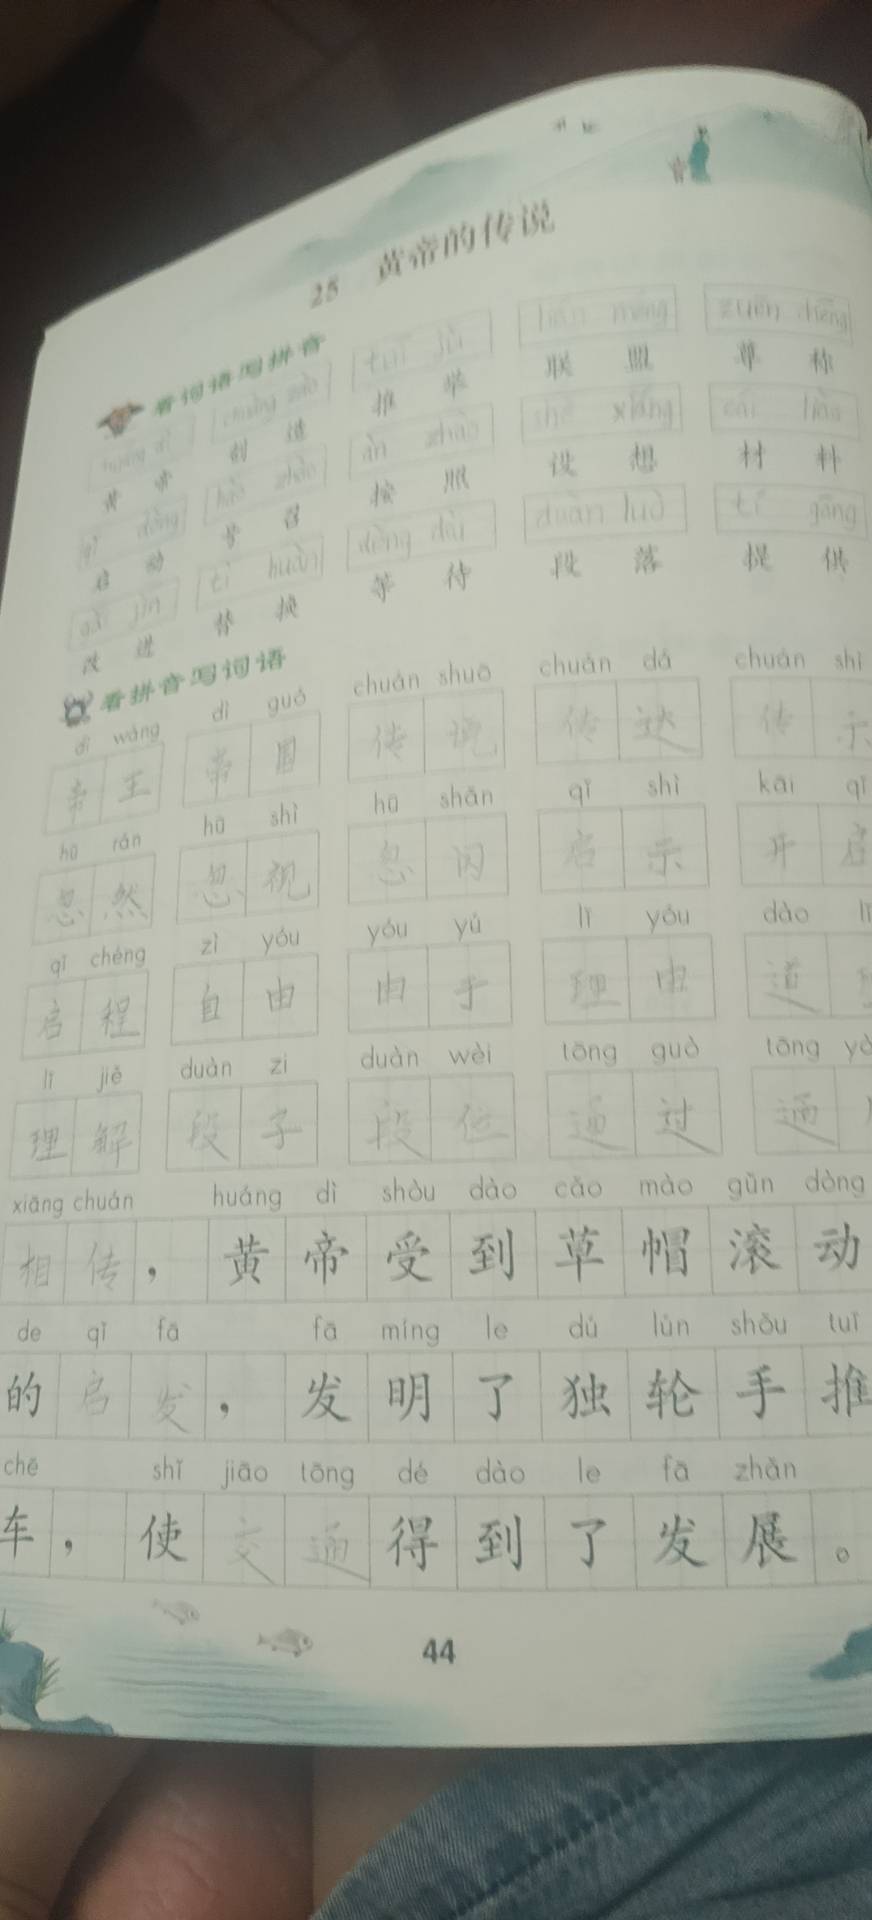 25 黄帝的传说
看词语写拼音
huáng dì chuàng zào tuī jǔ lián méng zūn chēng
黄帝 创造 推举 联盟 尊称
qǐ dòng hào zhào àn zhào shè xiǎng cái liào
启动 号召 按照 设想 材料
gǎi jìn tì huàn děng dài duàn luò tí gōng
改进 替换 等待 段落 提供
看拼音写词语
dì wáng dì guó chuán shuō chuán dá chuán shì
帝王 帝国 传说 传达 传示
hū rán hū shì hū shǎn qǐ shì kāi qǐ
忽然 忽视 忽闪 启示 开启
qǐ chéng zì yóu yóu yú lǐ yóu dào lǐ
启程 自由 由于 理由 道
lǐ jiě duàn zi duàn wèi tōng guò tōng
理解 段子 段位 通过 通
xiāng chuán huáng dì shòu dào cǎo mào gǔn dòng
相传，黄帝受到草帽滚动
de qǐ fā fā míng le dú lún shǒu tuī
的启发，发明了独轮手推
chē shǐ jiāo tōng dé dào le fā zhǎn
车，使交通得到了发展。
44